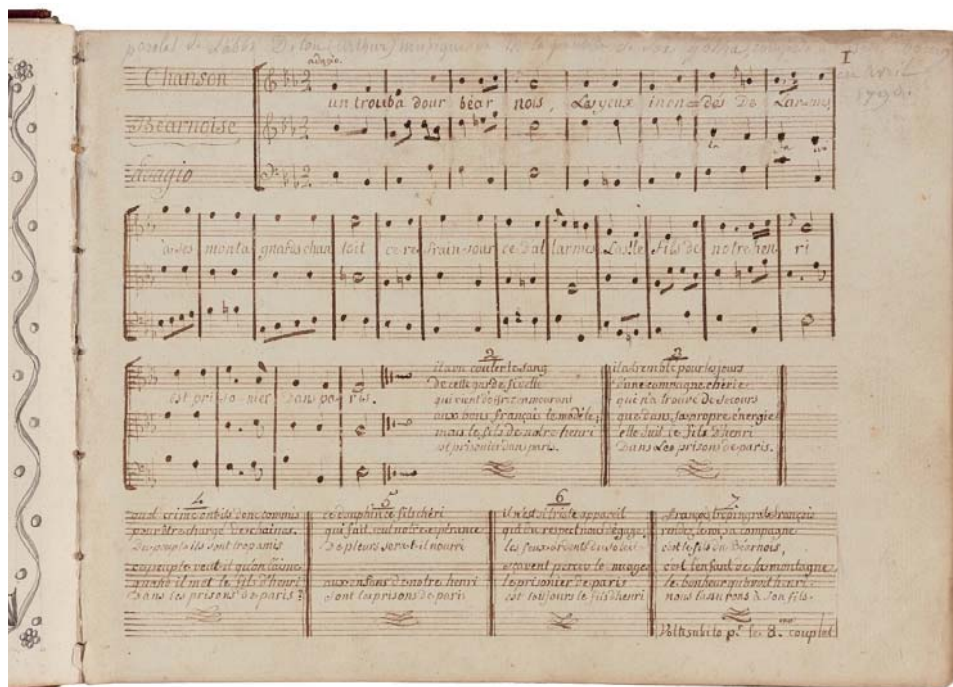 paroles de L'abbé
1
en avril
Chanson
adagio.
un trouba dour béar nois, Les yeux inon=dés De Larmes,
Béarnoise
Adagio
à ses monta gnards chan toit ce re frain sour ce d'al larmes Las le Fils de notre hen ri
est pri so nier Dans pa ris.
2
il a vu couler le sang
De cette garde fidelle
qui vient d'offrir en mourant
aux bons français le modèle;
mais le fils de notre henri
est prisonier dans paris.
3
il a tremblé pour les jours
d'une compagne chérie
qui n'a trouvé de secours
que dans sa propre énergie
elle suit le fils d'henri
Dans Les prisons de paris.
4
quel crime ont ils donc commis
pour être chargé de chaines.
Du peuple ils sont trop amis
ce peuple veut il qu'on
quand il met le fils d'henri
Dans les prisons de paris?
5
ce dauphin ce fils chéri
qui fait tout notre espérance
De pleurs sera t-il nourri
aux enfans de notre henri
sont les prisons de paris
6
il n'est si triste appareil
qui du respect nous dégage
les feux du soleil
sçavent percer le nuage
le prisonier de paris
est toujours le fils d'henri
7
français trop ingrats français
rendez le à sa compagne
c'est le fils du Béarnois,
c'est l'enfant de la montagne
le bonheur qu'avoit henri
nous l'assurons à son fils.
Volti subito pr. le 8.me couplet